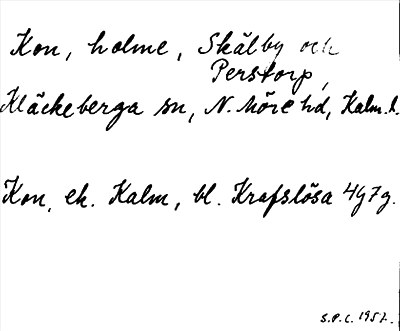 Kon, holme, Skälby och
Perstorp,
Kläckeberga sn, N. Möre hd, Kalm. l.
Kon, ek. Kalm, bl. Krafslösa 4g7g.
S.P.C. 1957.